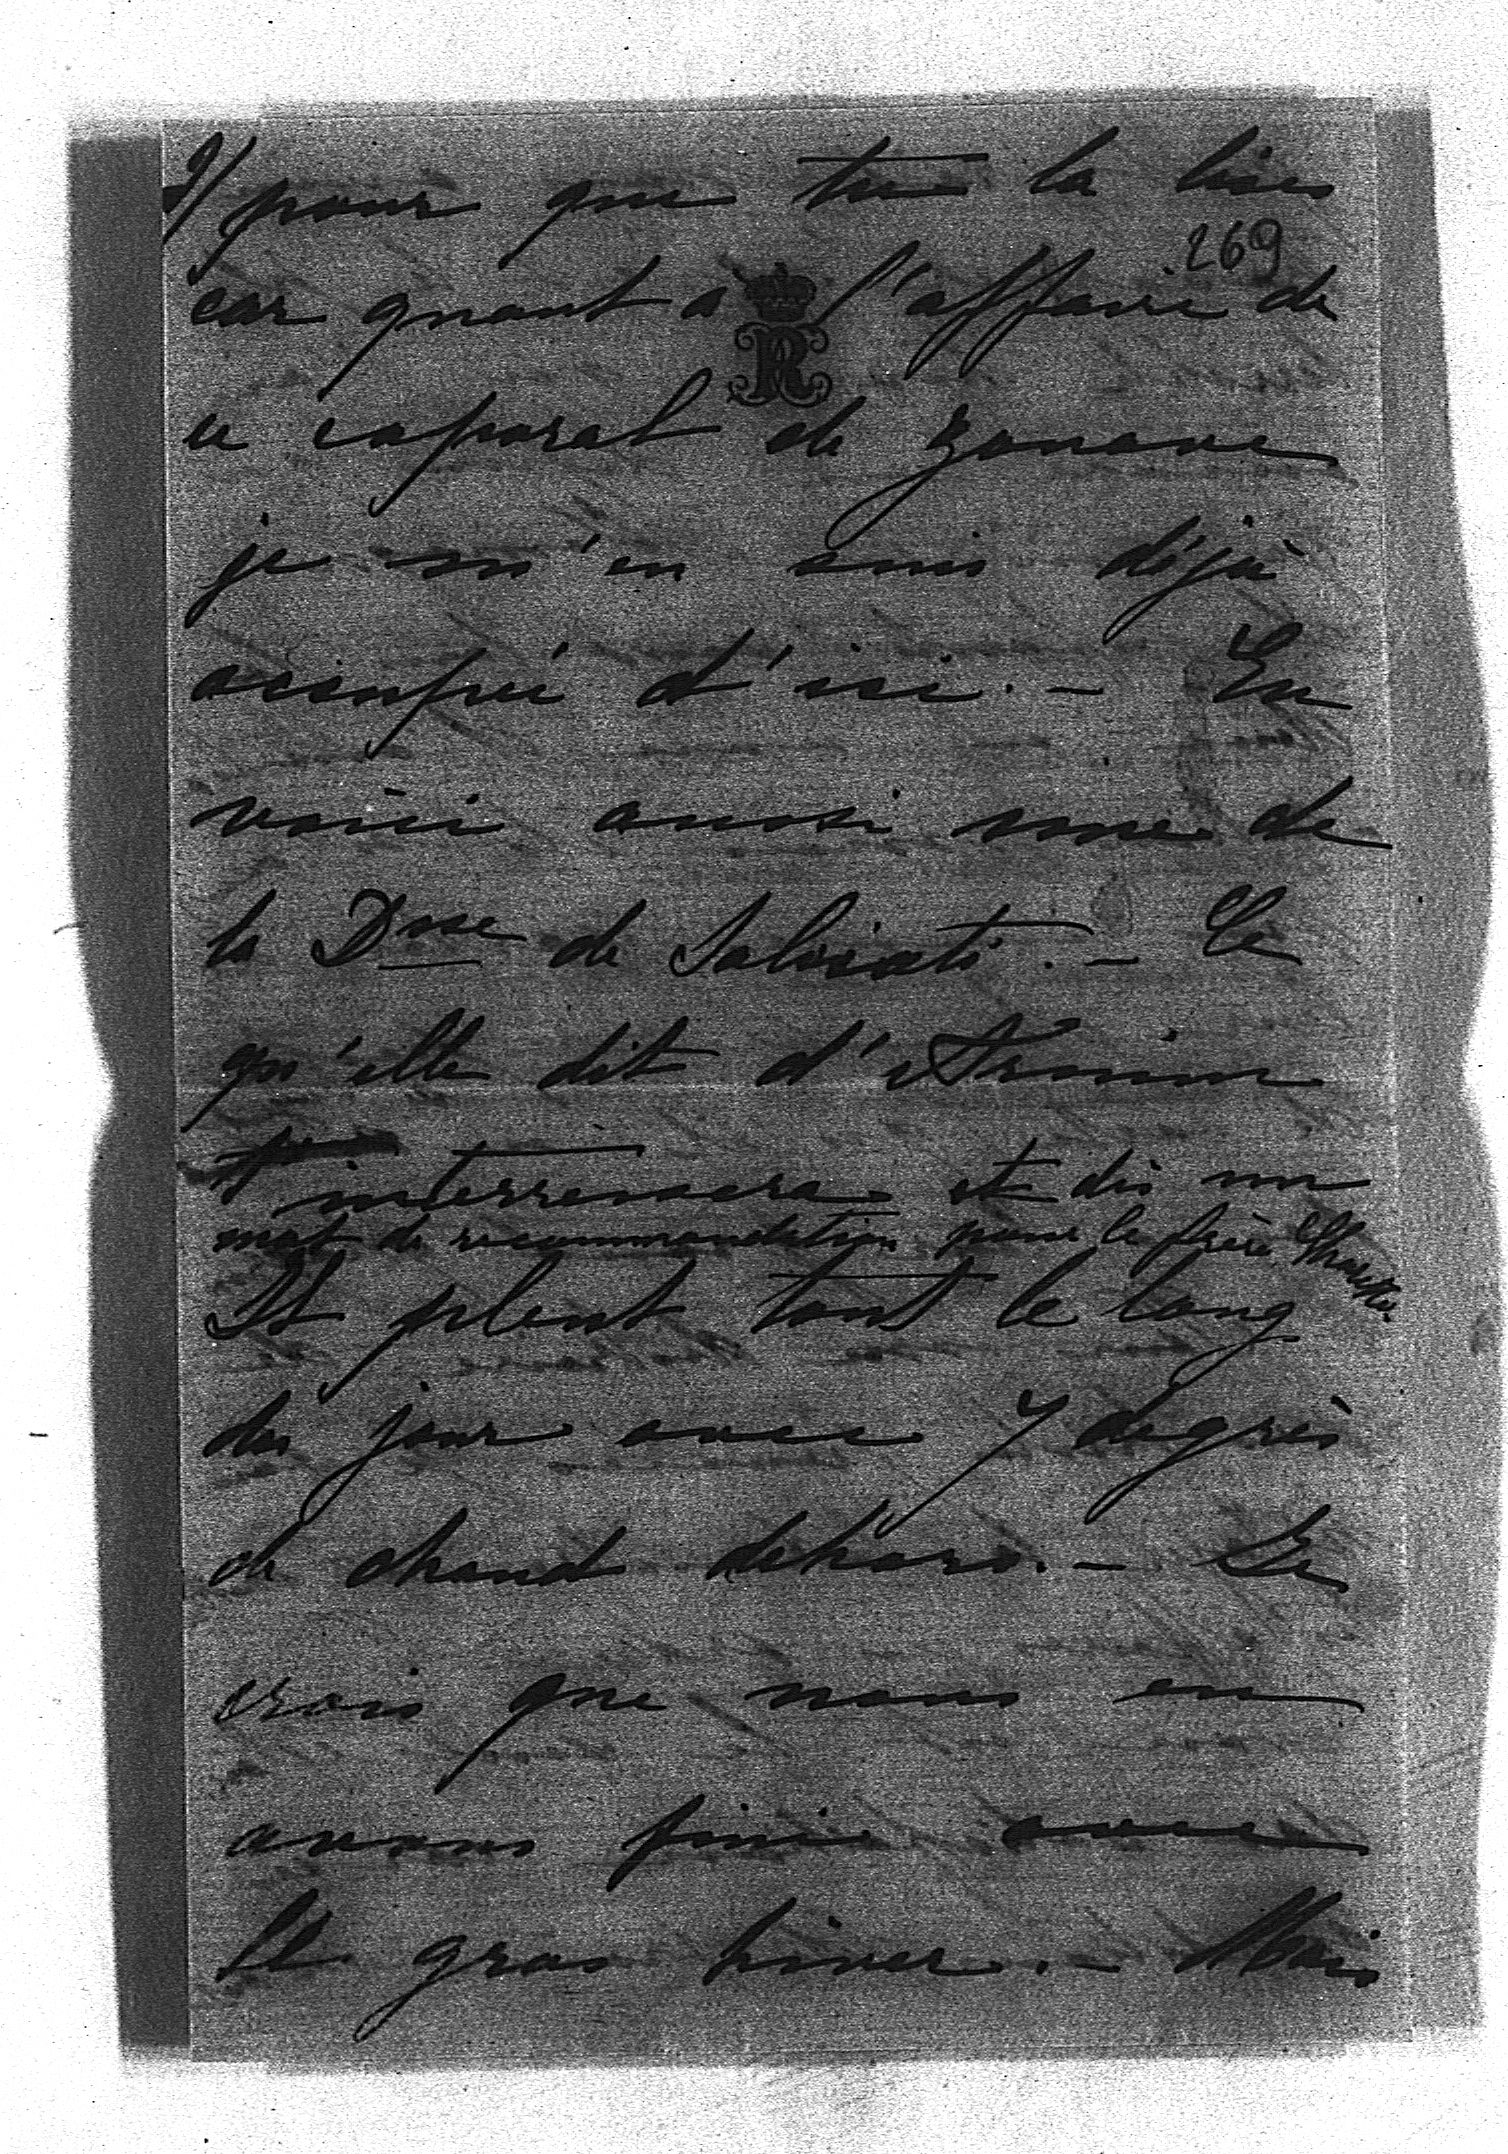 2/ pour que tu la lises
269
car quant a l'affaire de
R
ce caporal de zouave
je m'en suis déjà
occupée d'ici. - En
voici aussi une de
la Dsse de Salviati. - Ce
qu'elle dit d'
t'interressera et dis un
mot de recommandation pour le frère
Il pleut tout le long
du jour avec 7 degrès
de chaud dehors. - Je
crois que nous en
avons finie avec
le gros hiver. - Mais